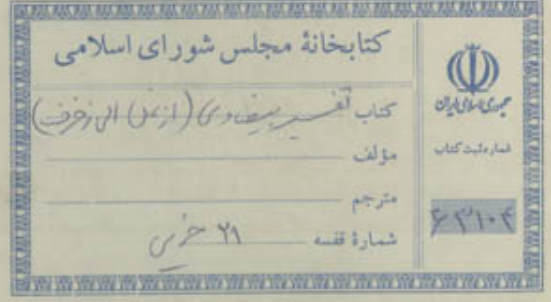 کتابخانهٔ مجلس شورای اسلامی
کتاب تفسیر بیضاوی ( از نمل الی زخرف )
مؤلف
مترجم
شمارهٔ قفسه ۲۱ خرس
جمهوری اسلامی ایران
شماره ثبت کتاب
۶۳۱۰۴